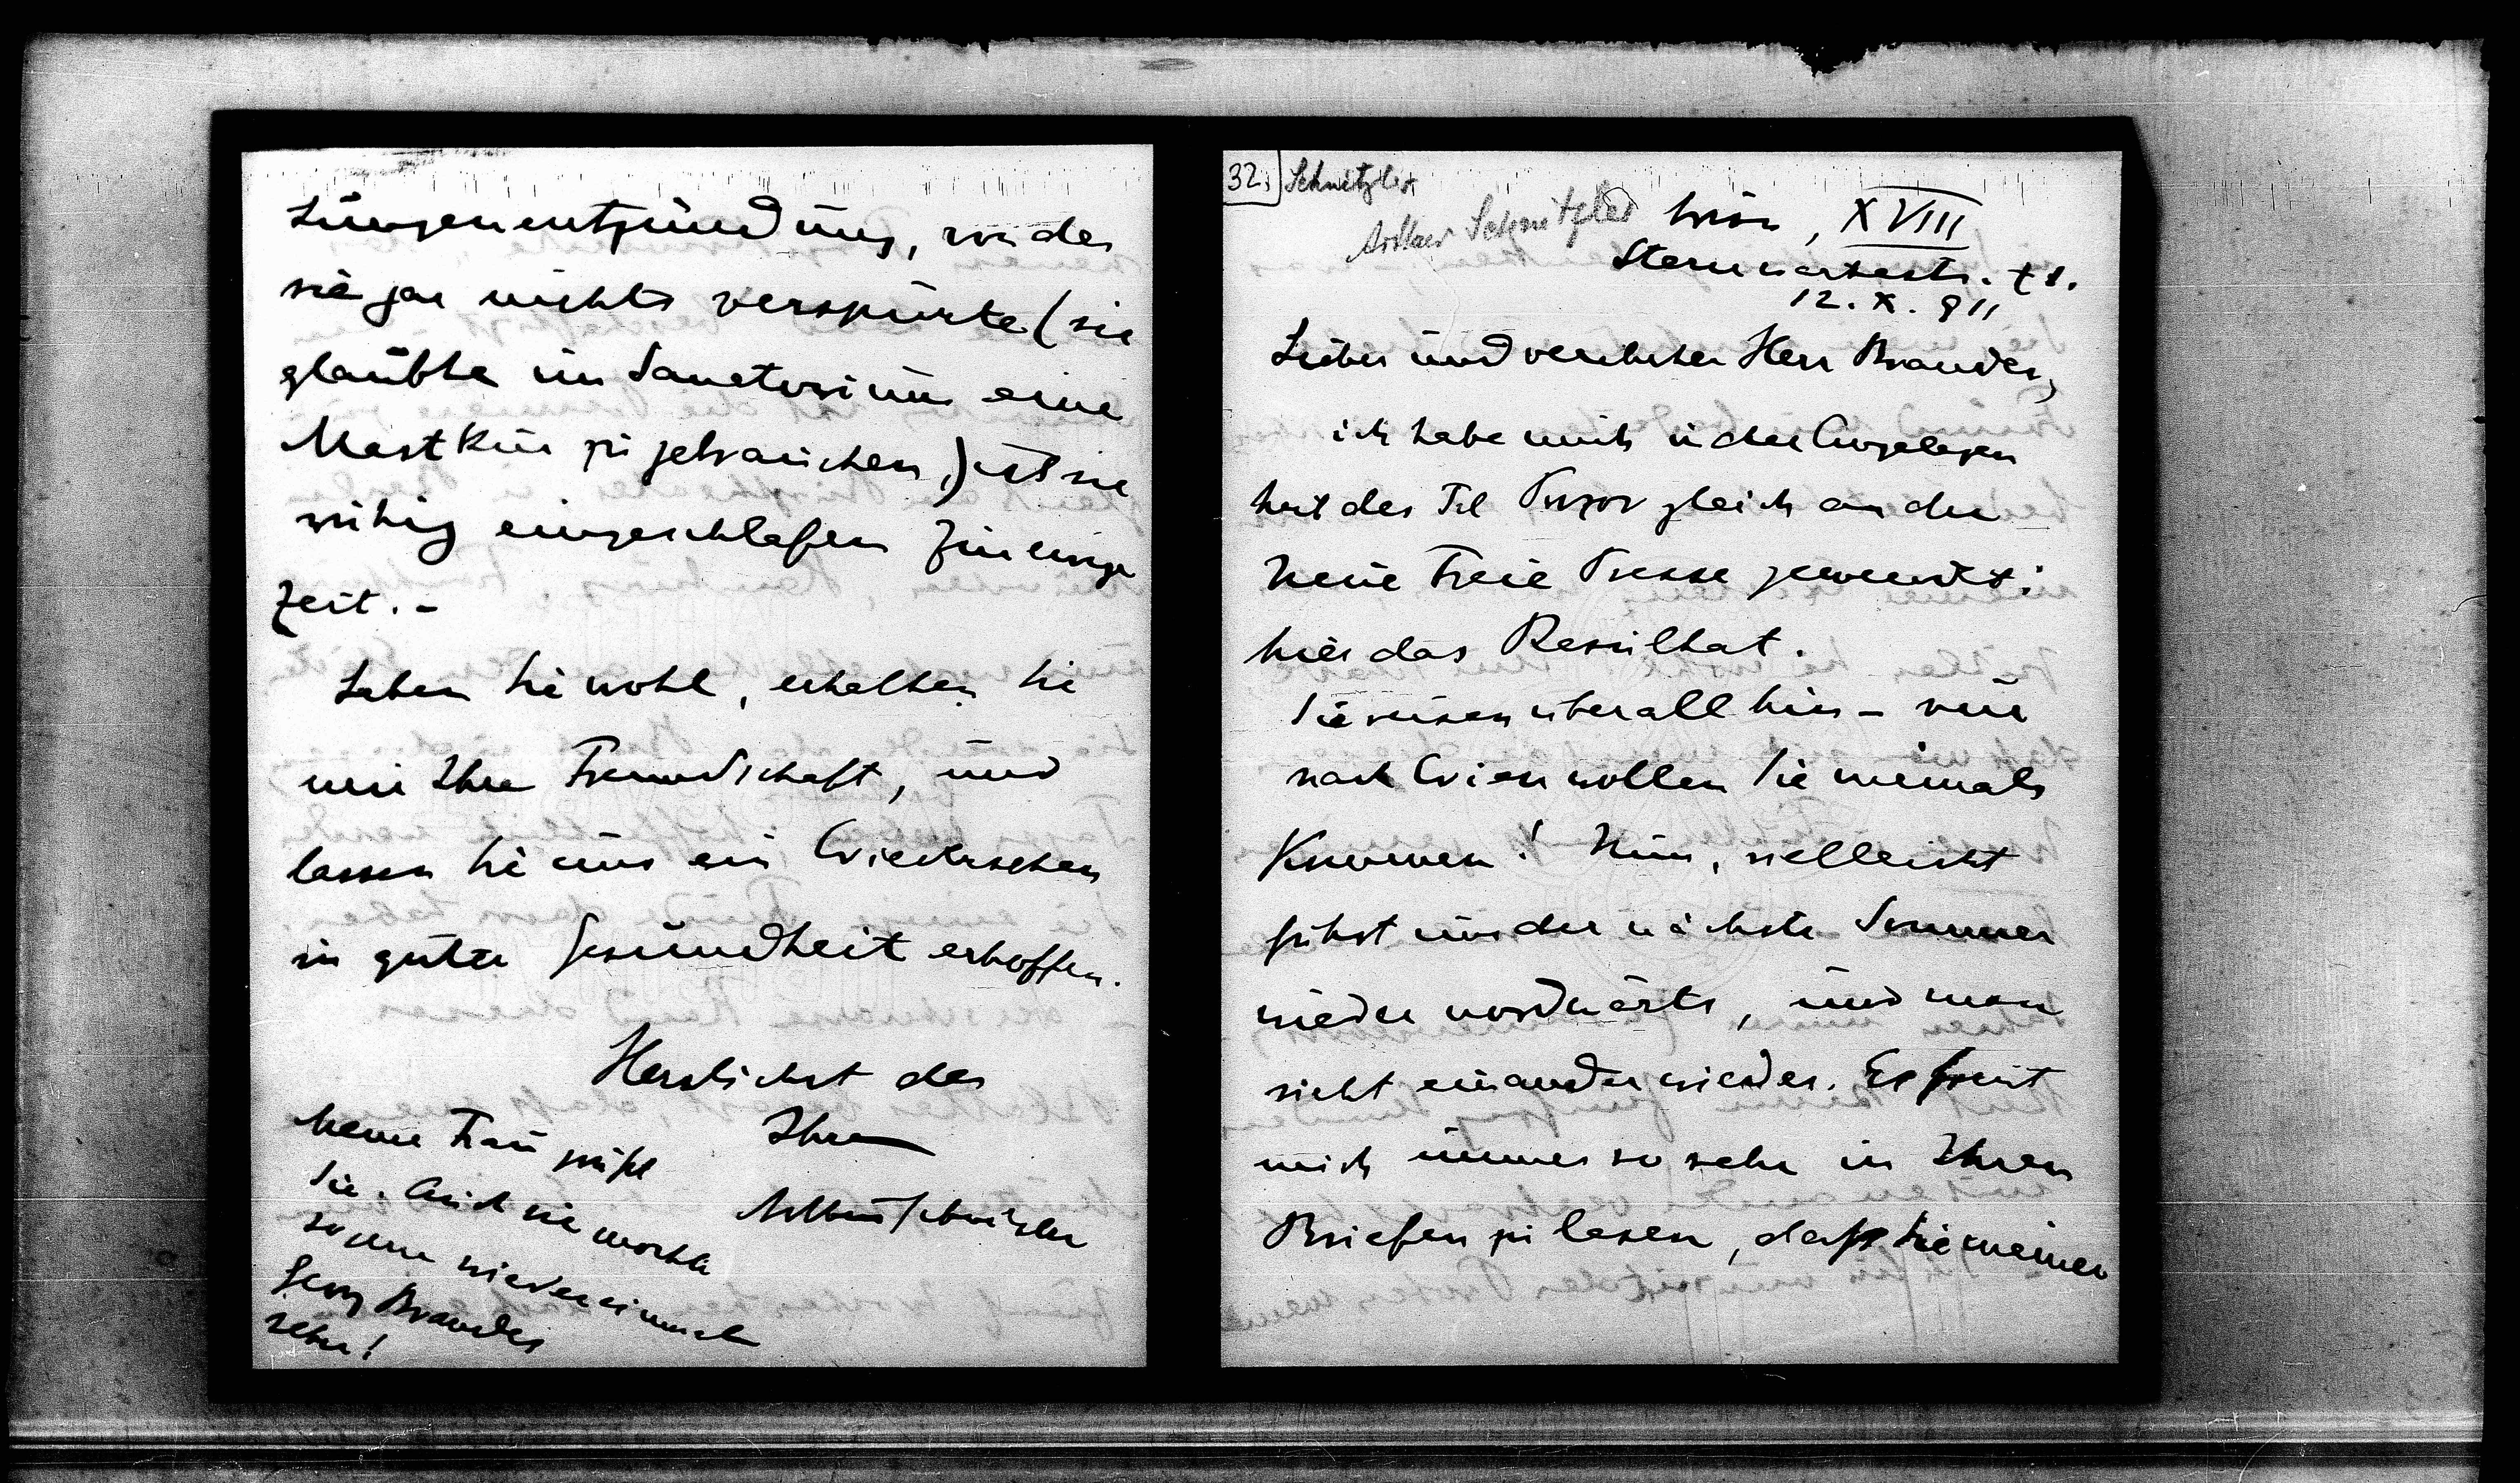 32. Schnitzler
Arthur Schnitzler
Wien, XVIII
Sternwartestr. 71.
12. X. 911
Lieber und verehrter Herr Brandes,
ich habe mich in der Angelegen
heit des Frl gleich an die
Neue Freie Presse gewendet;
hier das Resultat.
Sie reisen überall hin – nur
nach Wien wollen Sie niemals
kommen! Nun, vielleicht
führt uns der nächste Sommer
wieder nordwärts, und man
sieht einander wieder. Es freut
mich immer so sehr in Ihren
Briefen zu lesen, daß Sie meiner
Lungenentzündung, von der
sie gar nichts verspürte (sie
glaubte im Sanatorium eine
Mastkur zu gebrauchen,) ist sie
ruhig eingeschlafen für ewige
Zeit. –
Leben Sie wohl, erhalten Sie
mir Ihre Freundschaft, und
lassen Sie uns ein Wiedersehen
in guter Gesundheit erhoffen.
Herzlichst der
Ihre
Arthur Schnitzler
Meine Frau grüßt
Sie. Auch sie möchte
so gern wieder einmal
Georg Brandes
sehn!